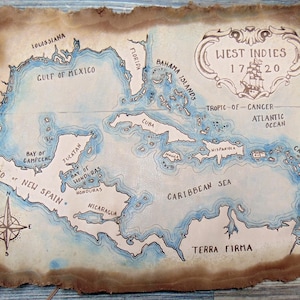 WEST INDIES
1720
GULF OF MEXICO
FLORIDA
BAHAMA ISLANDS
TROPIC - OF - CANCER
ATLANTIC
OCEAN
CUBA
HISPANIOLA
YUCATAN
BAY OF
CAMPECHE
BAY OF
HONDURAS
HONDURAS
OF NEW SPAIN
NICARAGUA
CARIBBEAN SEA
TERRA FIRMA